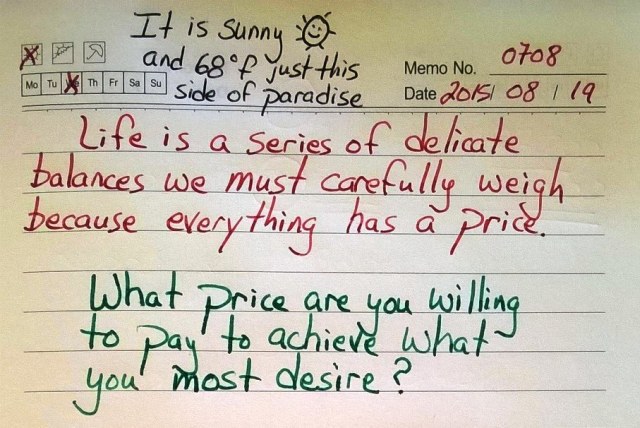 It is sunny
and 68°f just this
side of paradise
Memo No. 0708
Mo Tu Th Fr Sa Su
Date 2015/ 08 / 19
Life is a series of delicate
balances we must carefully weigh
because everything has a price.
What price are you willing
to pay to achieve what
you most desire?